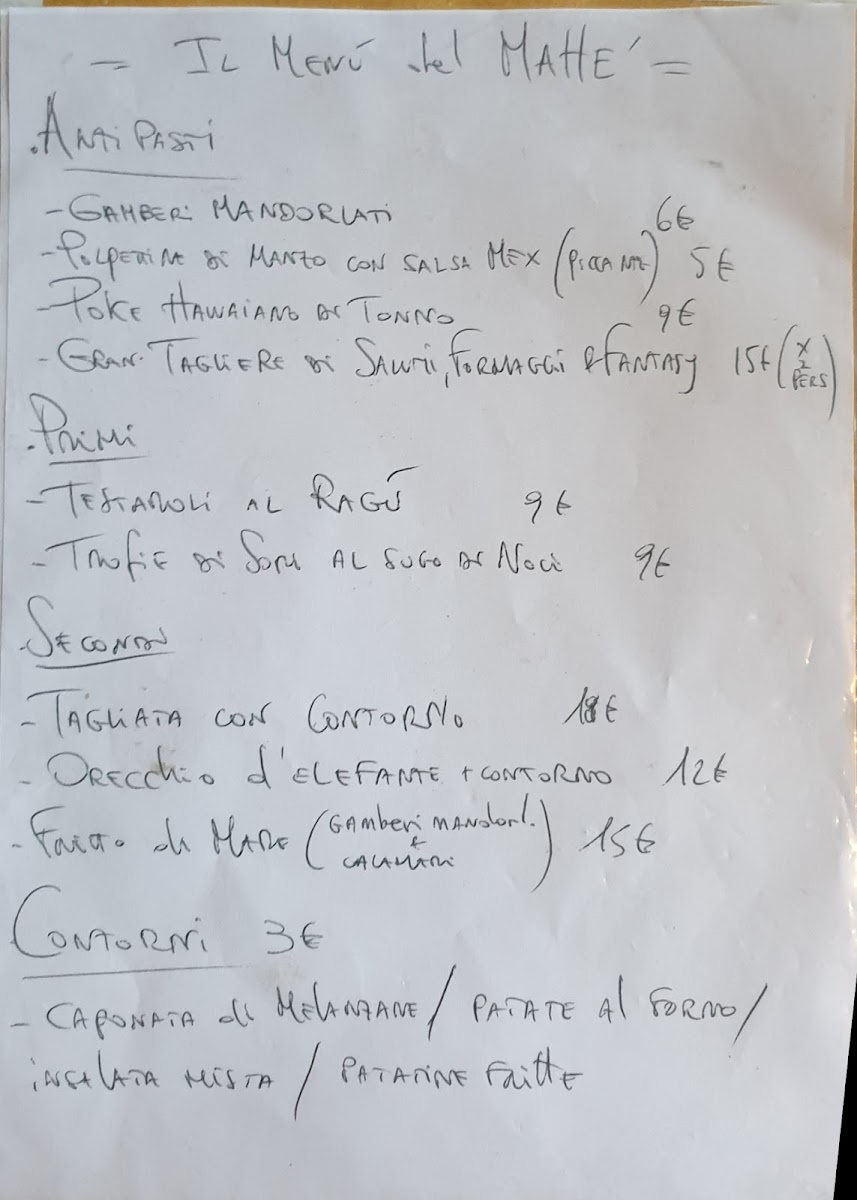 = IL MENÚ del MATTE' =
. ANTIPASTI
- GAMBERI MANDORLATI 6€
- POLPETTINE DI MANZO CON SALSA MEX (PICCANTE) 5€
- POKE HAWAIANO DI TONNO 9€
- GRAN TAGLIERE DI SALUMI, FORMAGGI & FANTASY 15€ (X 2 PERS)
. PRIMI
- TESTAROLI AL RAGÚ 9€
- TROFIE DI SORI AL SUGO DI NOCI 9€
. SECONDI
- TAGLIATA CON CONTORNO 18€
- ORECCHIO d'ELEFANTE + CONTORNO 12€
- FRITTO di MARE (GAMBERI MANDORL. + CALAMARI) 15€
CONTORNI 3€
- CAPONATA di MELANZANE / PATATE Al FORNO /
INSALATA MISTA / PATATINE FRITTE